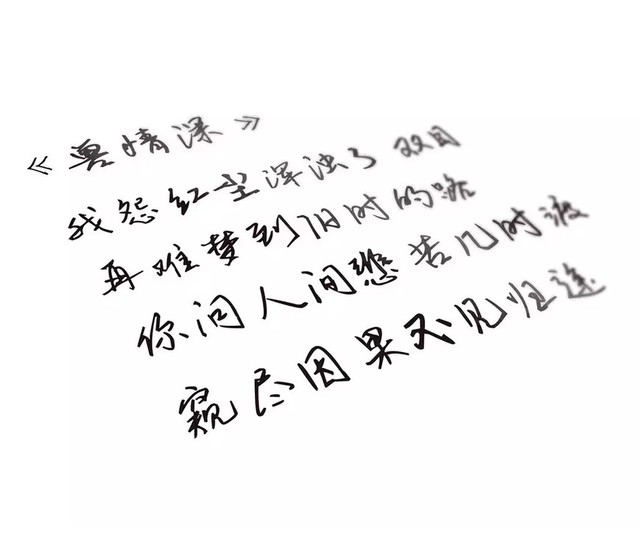 《情深》
我怨红尘浑浊了双目
再难梦到旧时的路
你问人间悲苦几时渡
窥尽因果不见归途